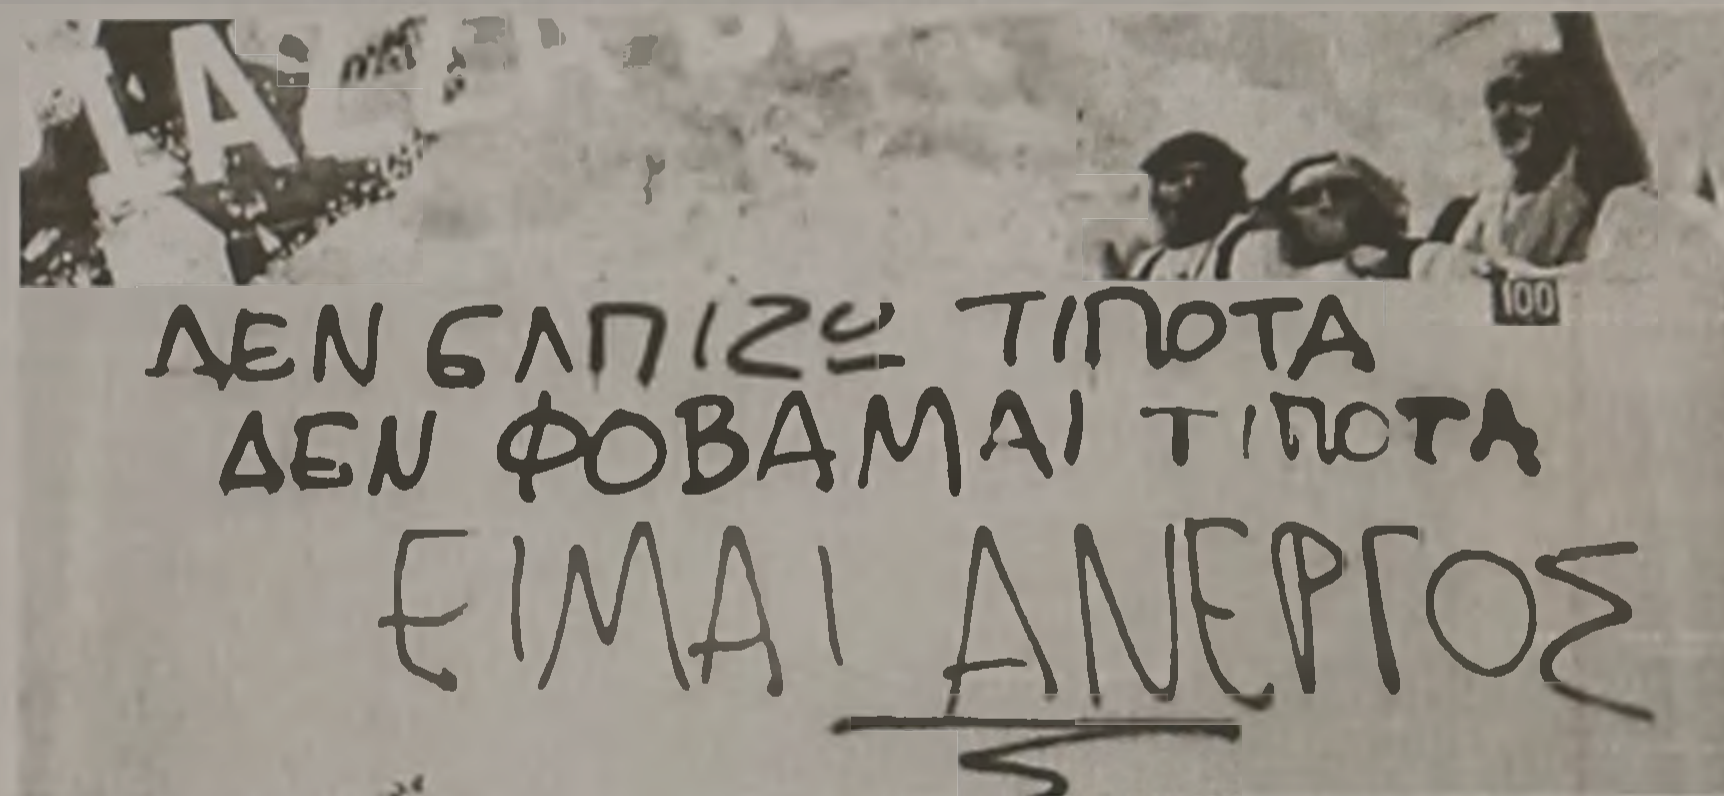 ΙΑ
100
ΔΕΝ ΕΛΠΙΖΩ ΤΙΠΟΤΑ
ΔΕΝ ΦΟΒΑΜΑΙ ΤΙΠΟΤΑ
ΕΙΜΑΙ ΑΝΕΡΓΟΣ